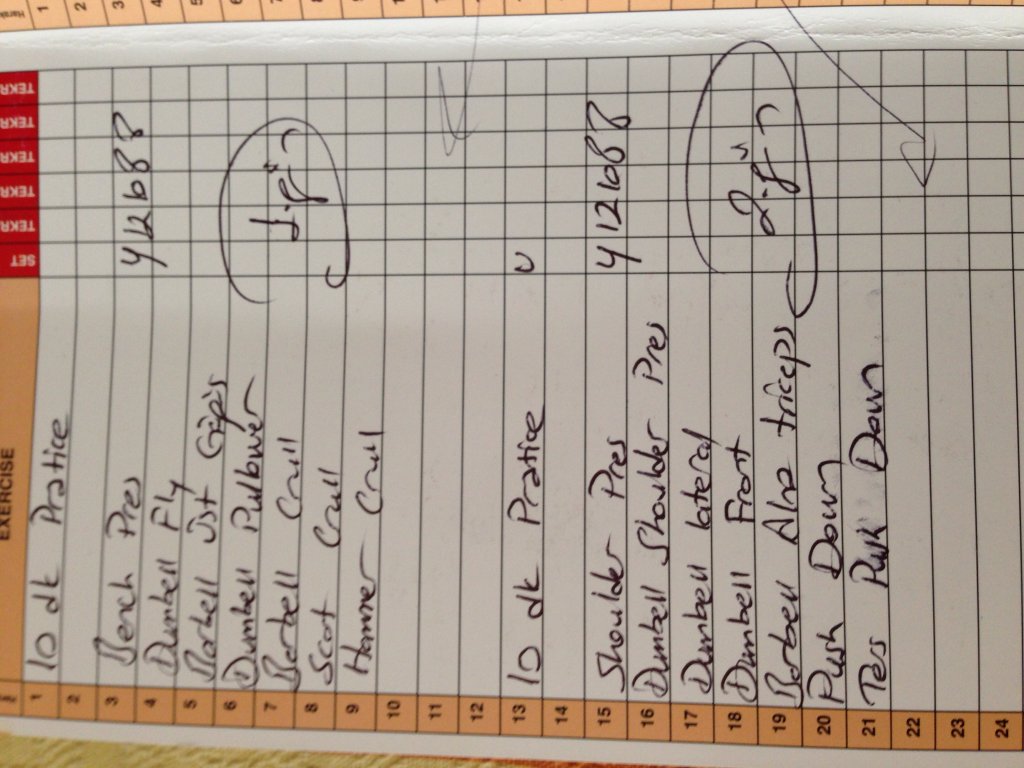 EXERCISE SET TEKR TEKR TEKR TEKR TEKR
1 10 dk Pratice
2
3 Bench Pres 4 12 10 8 8
4 Dumbell Fly
5 Barbell Üst Gögüs
6 Dumbell Pulbower
7 Barbell Crull 1. gün
8 Scot Crull
9 Hammer Crull
10
11
12
13 10 dk Pratice
14
15 Shoulder Pres 4 12 10 8 8
16 Dumbell Shoulder Pres
17 Dumbell lateral
18 Dumbell Front
19 Barbell Alna triceps 2. gün
20 Push Down
21 Ters Push Down
22
23
24